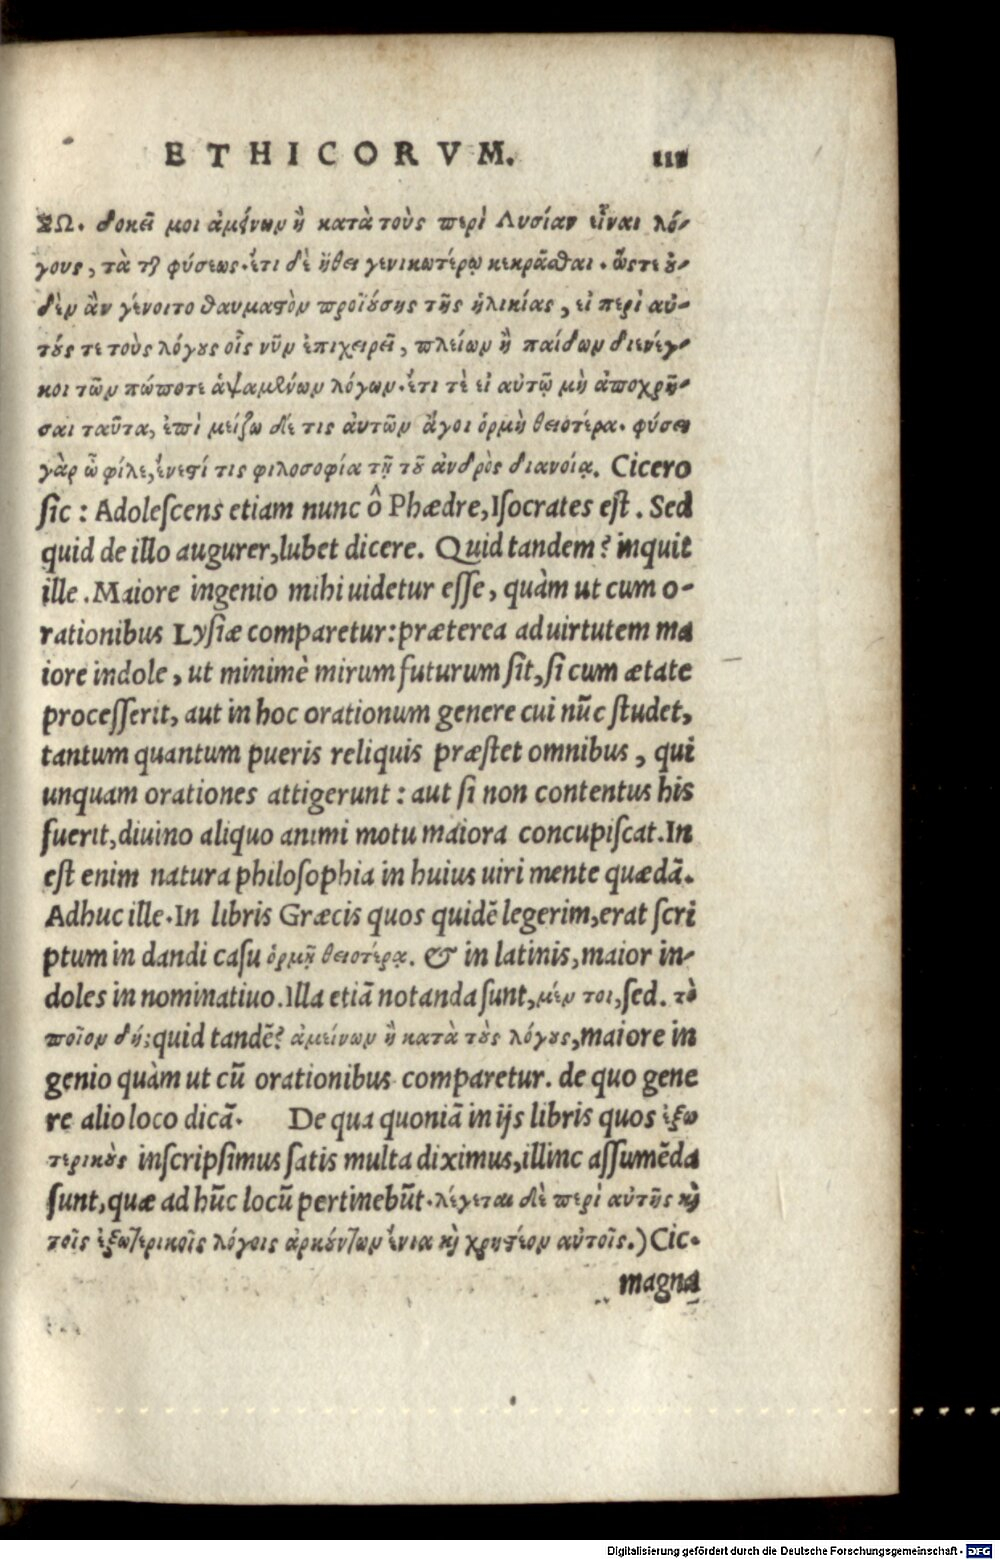 ETHICORVM. 111
ΣΩ. δοκεῖ μοι ἀμείνων ἢ κατὰ τοὺς περὶ Λυσίαν εἶναι λό-
γους, τὰ τῆς φύσεως. ἔτι δὲ ἤθει γενικωτέρῳ κεκρᾶσθαι. ὥστε οὐ-
δὲν ἂν γένοιτο θαυμαστὸν προϊούσης τῆς ἡλικίας, εἰ περὶ αὐ-
τούς τε τοὺς λόγους οἷς νῦν ἐπιχειρεῖ, πλείων ἢ παίδων διενέγ-
κοι τῶν πώποτε ἁψαμένων λόγων. ἔτι τὲ εἰ αὐτῷ μὴ ἀποχρῆ-
σαι ταῦτα, ἐπὶ μείζω δέ τις ἀυτῶν ἄγοι ὁρμὴ θειοτέρα. φύσει
γὰρ ὦ φίλε, ἔνεστί τις φιλοσοφία τῇ τοῦ ἀνδρὸς διανοίᾳ. Cicero
ſic: Adoleſcens etiam nunc ô Phædre, Iſocrates eſt. Sed
quid de illo augurer, lubet dicere. Quid tandem? inquit
ille. Maiore ingenio mihi uidetur eſſe, quàm ut cum o-
rationibus Lyſiæ comparetur: præterea ad uirtutem ma
iore indole, ut minimè mirum futurum ſit, ſi cum ætate
proceſſerit, aut in hoc orationum genere cui nūc ſtudet,
tantum quantum pueris reliquis præſtet omnibus, qui
unquam orationes attigerunt: aut ſi non contentus his
fuerit, diuino aliquo animi motu maiora concupiſcat. In
eſt enim natura philoſophia in huius uiri mente quædā.
Adhuc ille. In libris Græcis quos quidē legerim, erat ſcri
ptum in dandi caſu ὁρμῇ θειοτέρᾳ. & in latinis, maior in-
doles in nominatiuo. Illa etiā notanda ſunt, μέν τοι, ſed. τὸ
ποῖον δή; quid tandē? ἀμείνων ἢ κατὰ τοὺς λόγους, maiore in
genio quàm ut cū orationibus comparetur. de quo gene
re alio loco dicā. De qua quoniā in ijs libris quos ἐξω
τερικοὺς inſcripſimus ſatis multa diximus, illinc aſſumēda
ſunt, quæ ad hūc locū pertinebūt. λέγεται δὲ περὶ αὐτῆς καὶ
τοῖς ἐξωτερικοῖς λόγοις ἀρκούντων ἔνια καὶ χρηστέον αὐτοῖς.) Cic.
magna
Digitalisierung gefördert durch die Deutsche Forschungsgemeinschaft - DFG